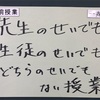 前授業
先生のせいでも
生徒のせいでも
どちらのせいでも
ない授業